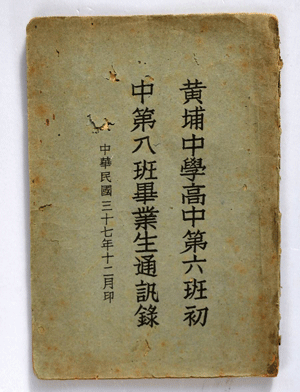 黄埔中學高中第六班初
中第八班畢業生通訊錄
中華民國三十七年十二月印